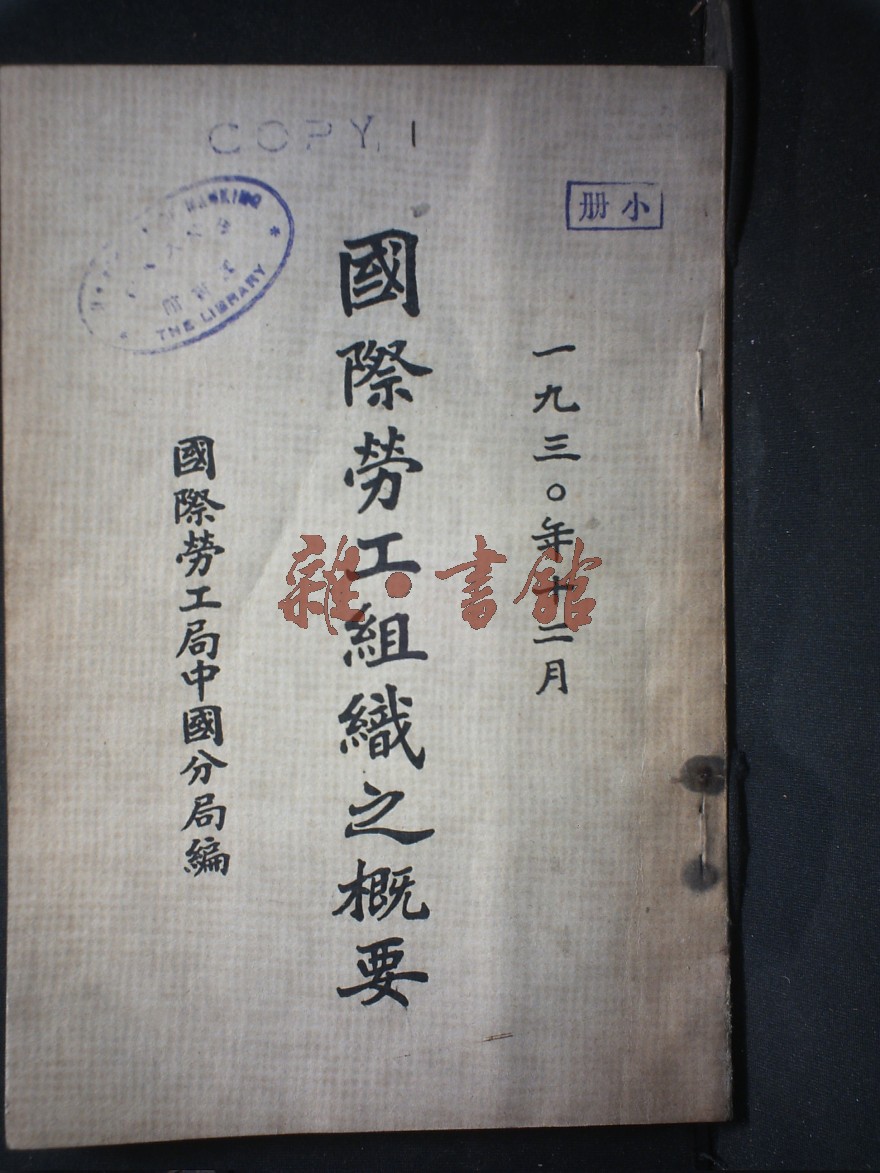 COPY 1
小册
NANKING
THE LIBRARY
一九三〇年十二月
國際勞工組織之概要
國際勞工局中國分局編
雜·書館